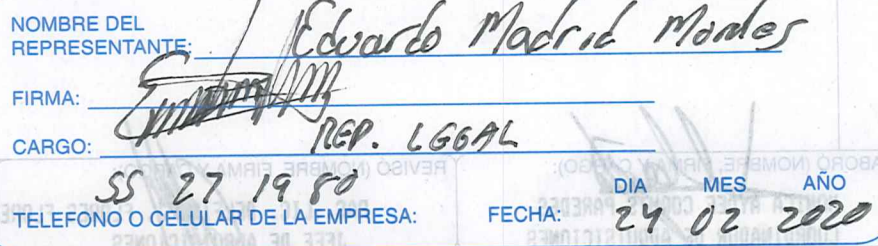 NOMBRE DEL
REPRESENTANTE: Eduardo Madrid Montes
FIRMA:
CARGO: REP. LEGAL
55 27 19 80
TELEFONO O CELULAR DE LA EMPRESA:
FECHA: DIA MES AÑO
24 02 2020